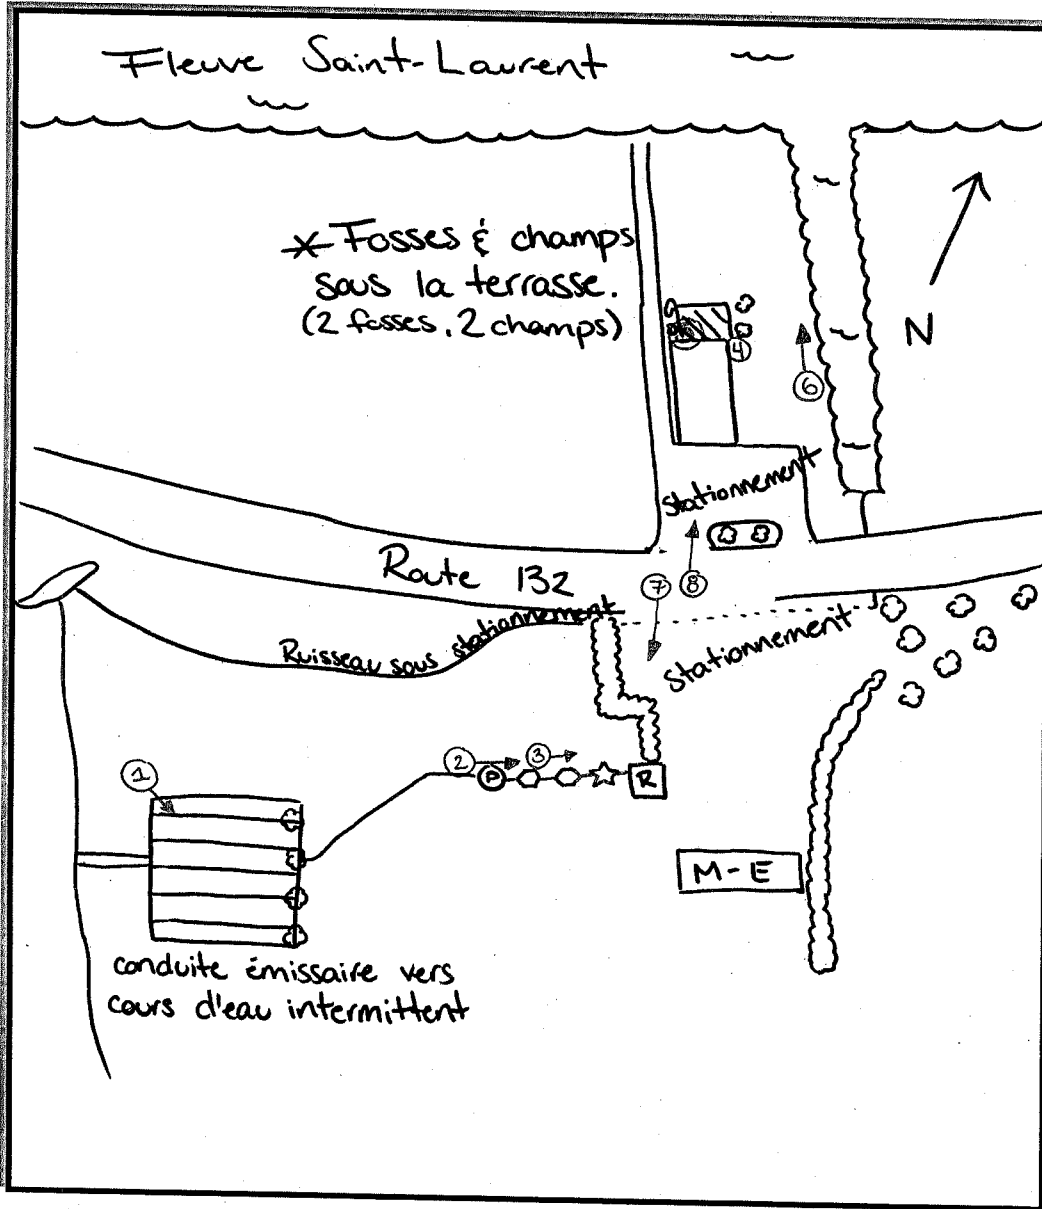 Fleuve Saint-Laurent
* Fosses & champs
sous la terrasse.
(2 fosses, 2 champs)
N
4
6
Stationnement
Route 132
7
8
Ruisseau sous stationnement
Stationnement
1
2
3
P
R
M-E
conduite émissaire vers
cours d'eau intermittent